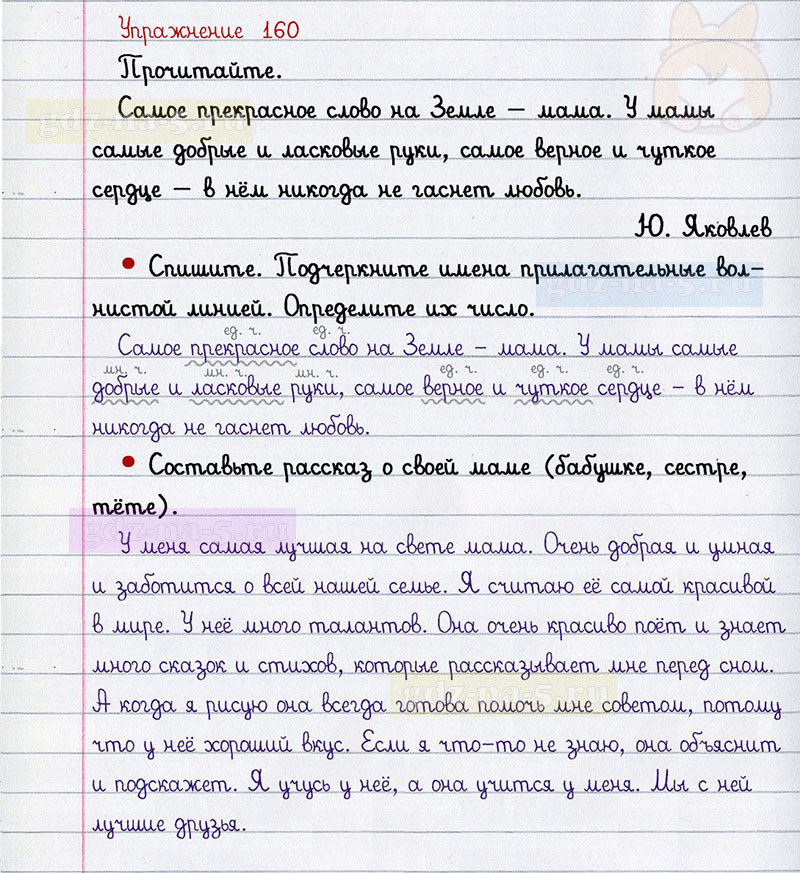 Упражнение 160
Прочитайте.
Самое прекрасное слово на Земле – мама. У мамы
gdz-na-5.ru
самые добрые и ласковые руки, самое верное и чуткое
сердце – в нём никогда не гаснет любовь.
Ю. Яковлев
• Спишите. Подчеркните имена прилагательные вол-
gdz-na-5.ru
нистой линией. Определите их число.
ед. ч. ед. ч.
Самое прекрасное слово на Земле – мама. У мамы самые
мн. ч. мн. ч. мн. ч. ед. ч. ед. ч. ед. ч.
добрые и ласковые руки, самое верное и чуткое сердце – в нём
никогда не гаснет любовь.
• Составьте рассказ о своей маме (бабушке, сестре,
тёте).
gdz-na-5.ru
У меня самая лучшая на свете мама. Очень добрая и умная
и заботится о всей нашей семье. Я считаю её самой красивой
в мире. У неё много талантов. Она очень красиво поёт и знает
много сказок и стихов, которые рассказывает мне перед сном.
gdz-na-5.ru
А когда я рисую она всегда готова помочь мне советом, потому
что у неё хороший вкус. Если я что-то не знаю, она объяснит
и подскажет. Я учусь у неё, а она учится у меня. Мы с ней
лучшие друзья.